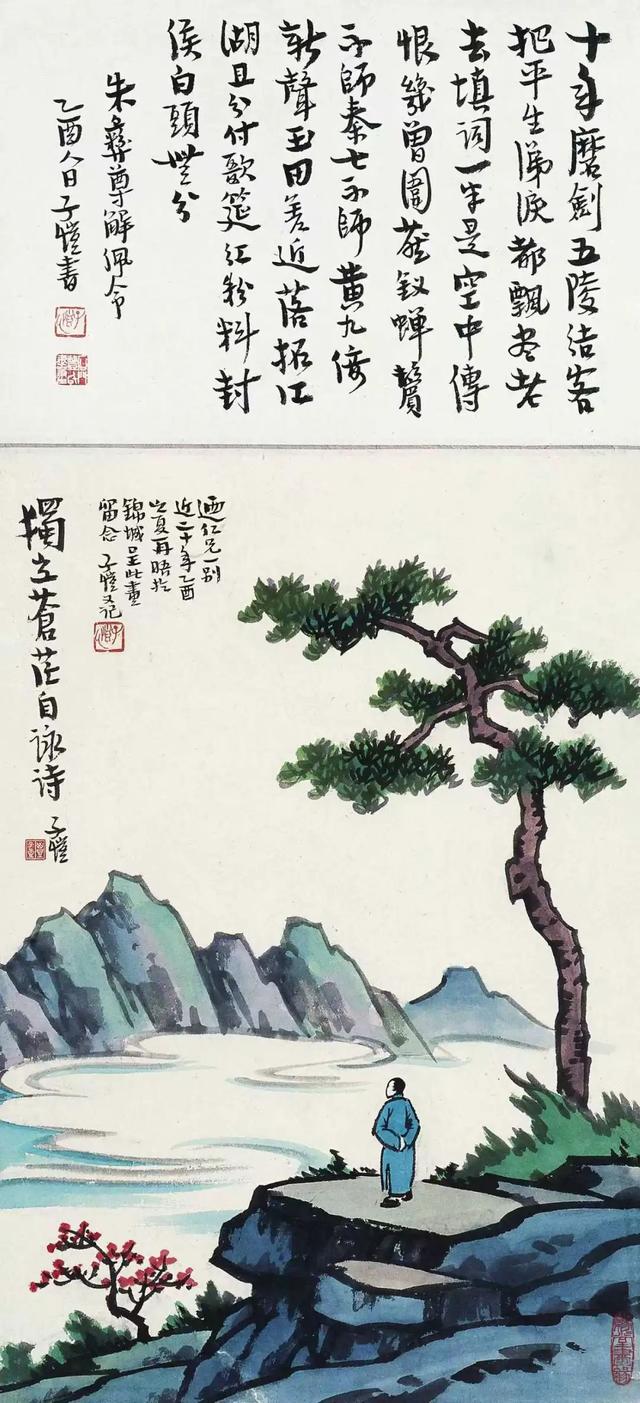 十年磨劍五陵结客
把平生涕淚都飄尽老
去填詞一半是空中傳
恨幾曾圍燕釵蟬鬢
不師秦七不師黄九倚
新聲玉田差近落拓江
湖且分付歌筵红粉料封
侯白頭無分
朱彝尊解佩令
乙酉人日子愷書
迺仁兄一别
近二十年乙酉
之夏再晤於
錦城呈此畫
留念 子愷又记
獨立蒼茫自詠詩
子愷